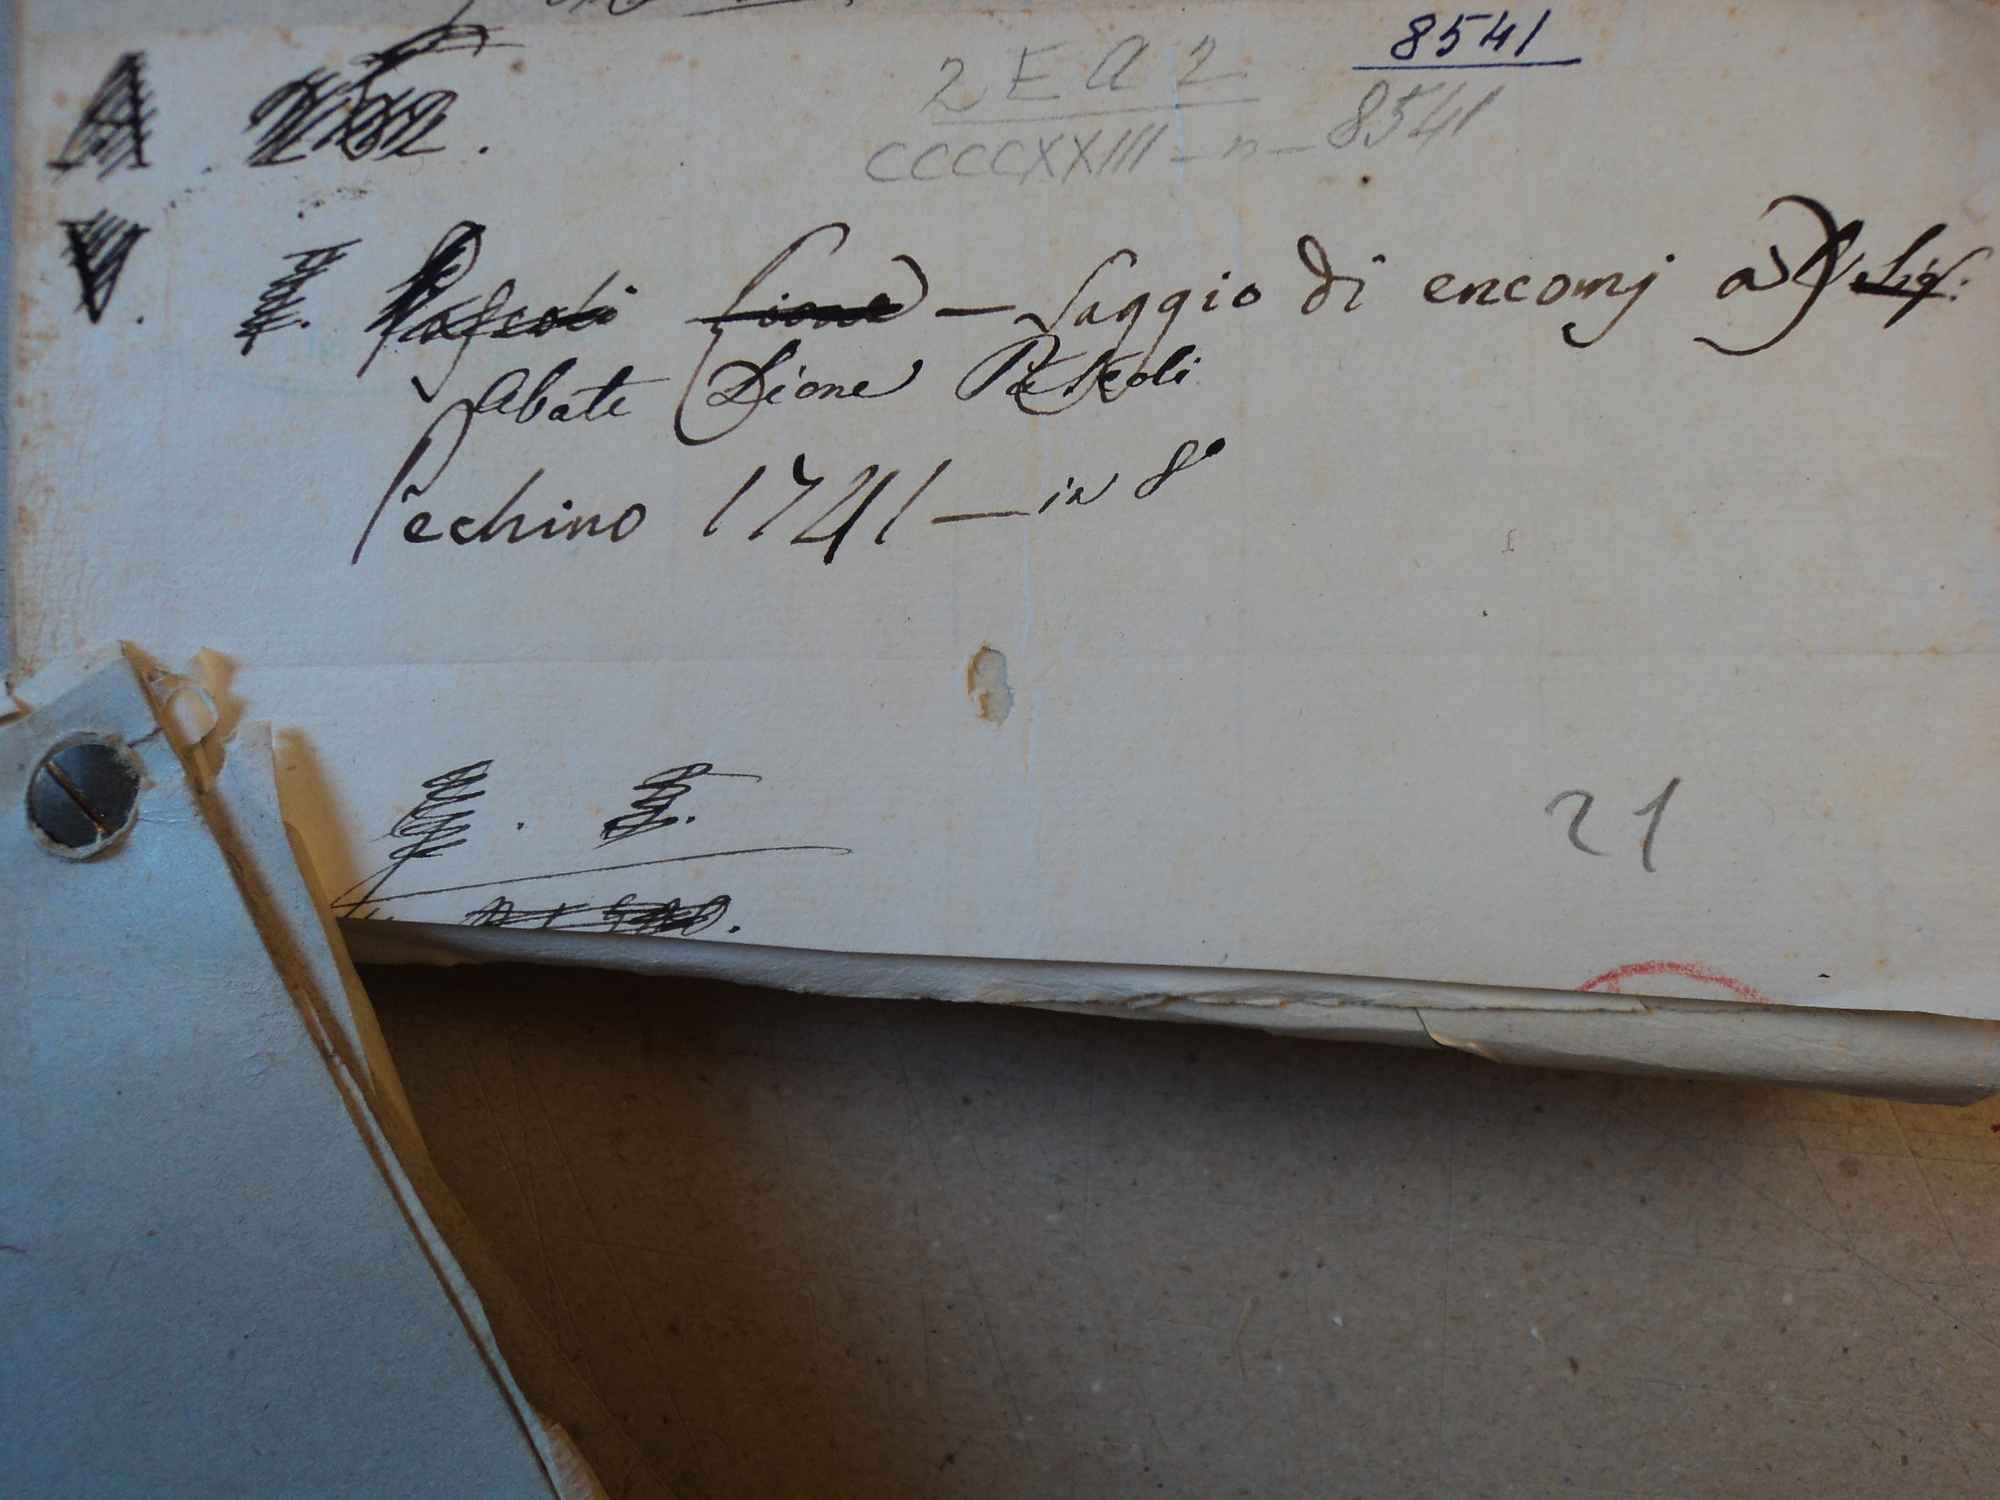 8541
2 E A 2
CCCCXXIII - n - 8541
A
V.
Pascoli Lione - Saggio di encomj al Sig:
Abate Lione Pascoli
Pechino 1741 - in 8°
21